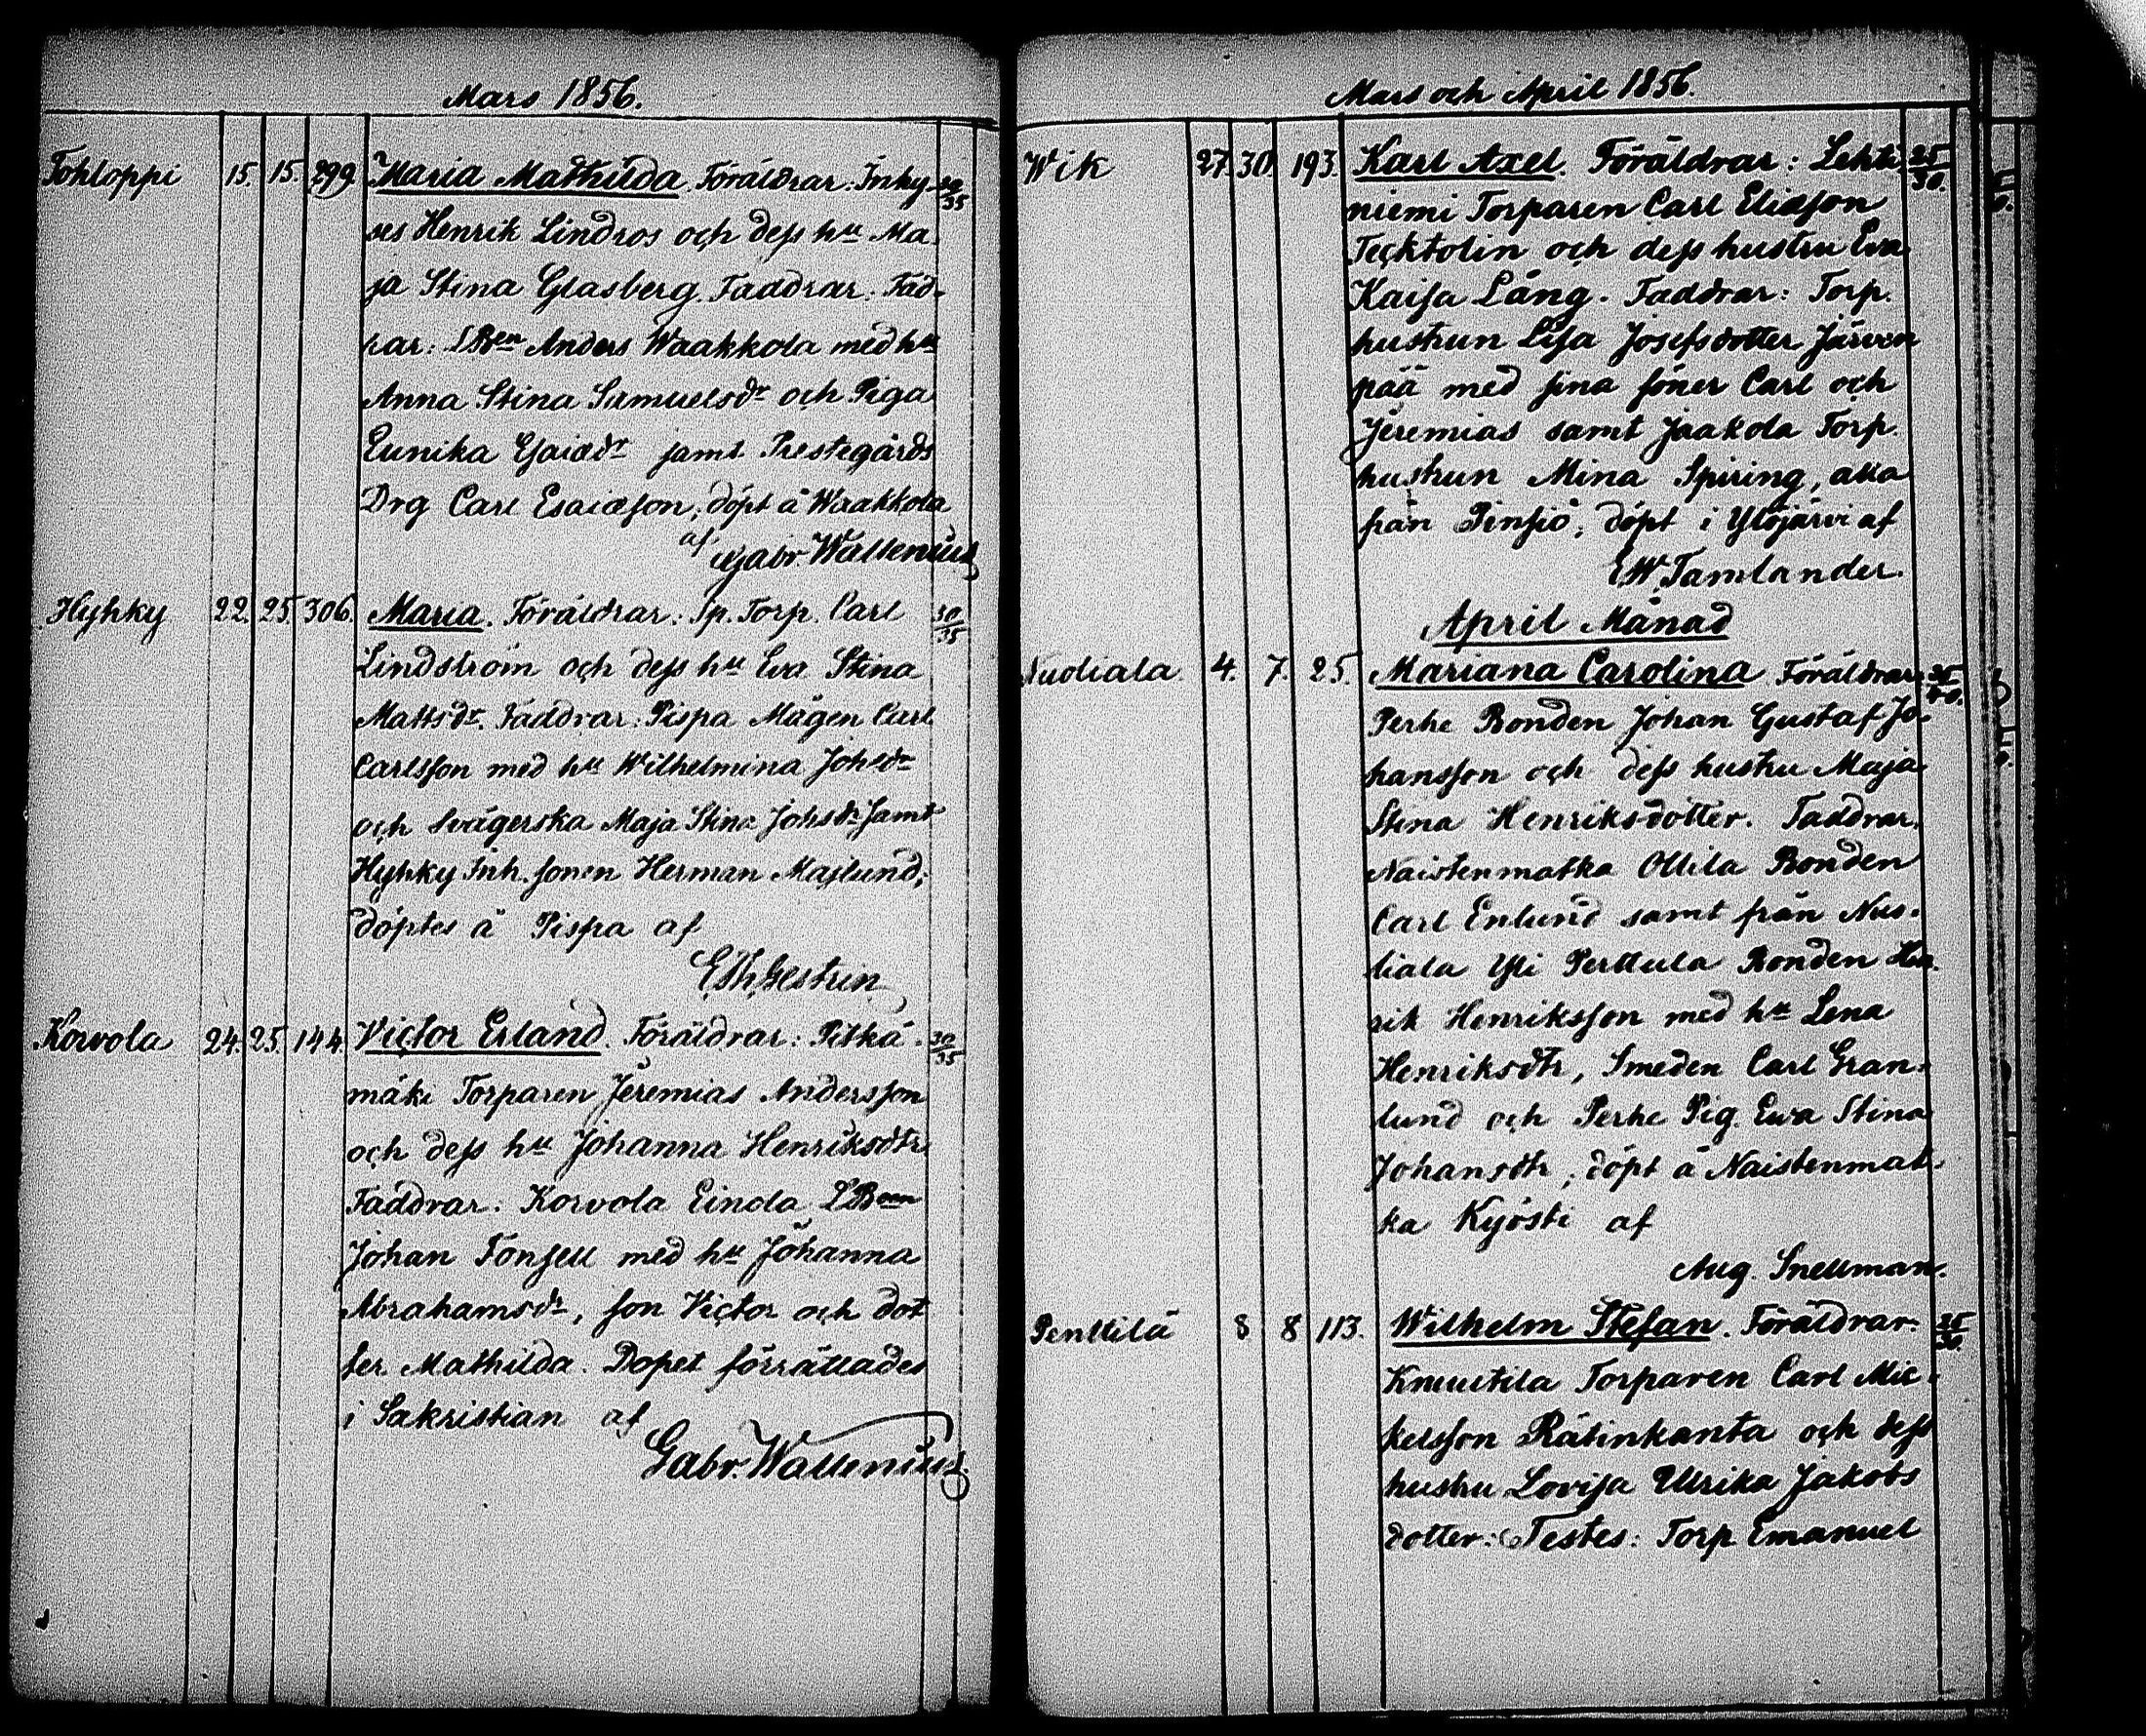 Mars 1856.
Tohloppi 15. 15. 299. Maria Mathilda. Föräldrar: Inhy- 30/35
ses Henrik Lindros och dess hu Ma-
ja Stina Glasberg. Faddrar: Fad-
rar: LBen Anders Waakkola med hu
Anna Stina Samuelsdr och Piga
Eunika Esaiædr samt Prestegårds
Drg Carl Esaiæson; döpt å Waakkola
af Gabr. Wallenius
Hyhky 22. 25. 306. Maria. Föräldrar: Sp. Torp. Carl 30/35
Lindström och dess hu Eva Stina
Mattsdr. Faddrar: Pispa Mågen Carl
Carlsson med hu Wilhelmina Johsdr
och Svägerska Maja Stina Johsdr samt
Hyhky Inh. sonen Herman Majlund;
döptes å Pispa af
E.Th.Gestrin
Korvola 24. 25. 144. Victor Erland. Föräldrar: Pitkä- 30/35
mäki Torparen Jeremias Andersson
och dess hu Johanna Henriksdtr
Faddrar: Korvola Einola LBonn
Johan Fonsell med hu Johanna
Abrahamsdr, son Victor och dot
ter Mathilda. Dopet förrättades
i Sakristian af
Gabr. Wallenius.
Mars och April 1856.
Wik 27. 30. 193. Karl Axel. Föräldrar: Lehti- 25/30.
niemi Torparen Carl Eliasson
Tecktolin och dess hustru Eva
Kaisa Lång. Faddrar: Torp.
hustrun Lisa Josefsdotter Järven
pää med sina söner Carl och
Jeremias samt Jaakola Torp.
hustrun Mina Spiring, alla
från Pinsiö; döpt i Ylöjärvi af
EW Tamlander.
April Månad
Nuoliala 4. 7. 25. Mariana Carolina Föräldrar:
Perhe Bonden Johan Gustaf Jo-
hansson och dess hustru Maja
Stina Henriksdotter. Faddrar.
Naistenmatka Ollila Bonden
Carl Enlund samt från Nuo-
liala Yli Perttula Bonden Hen-
rik Henriksson med hu Lena
Henriksdtr, Smeden Carl Gran-
lund och Perhe Pig. Ewa Stina
Johansdtr; döpt å Naistenmat-
ka Kyösti af
Aug. Snellman.
Penttilä 8 8 113. Wilhelm Stefan. Föräldrar:
Knuutila Torparen Carl Mic-
kelsson Rätinkanta och dess
hustru Lovisa Ulrika Jakobs
dotter: Testes: Torp. Emanuel